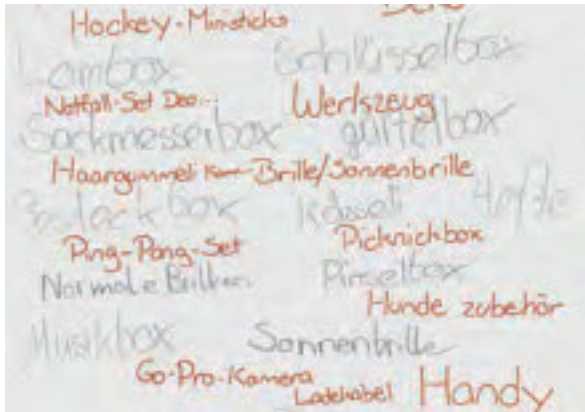 Hockey-Ministicks
Schlüsselbox
Notfall-Set Deo...
Werkszeug
Sackmesserbox gürtelbox
Haargummeli Brille/Sonnenbrille
box
Ping-Pong-Set
Picknickbox
Normale
Pinselbox
Hunde zubehör
Musikbox
Sonnenbrille
Go-Pro-Kamera
Ladekabel
Handy